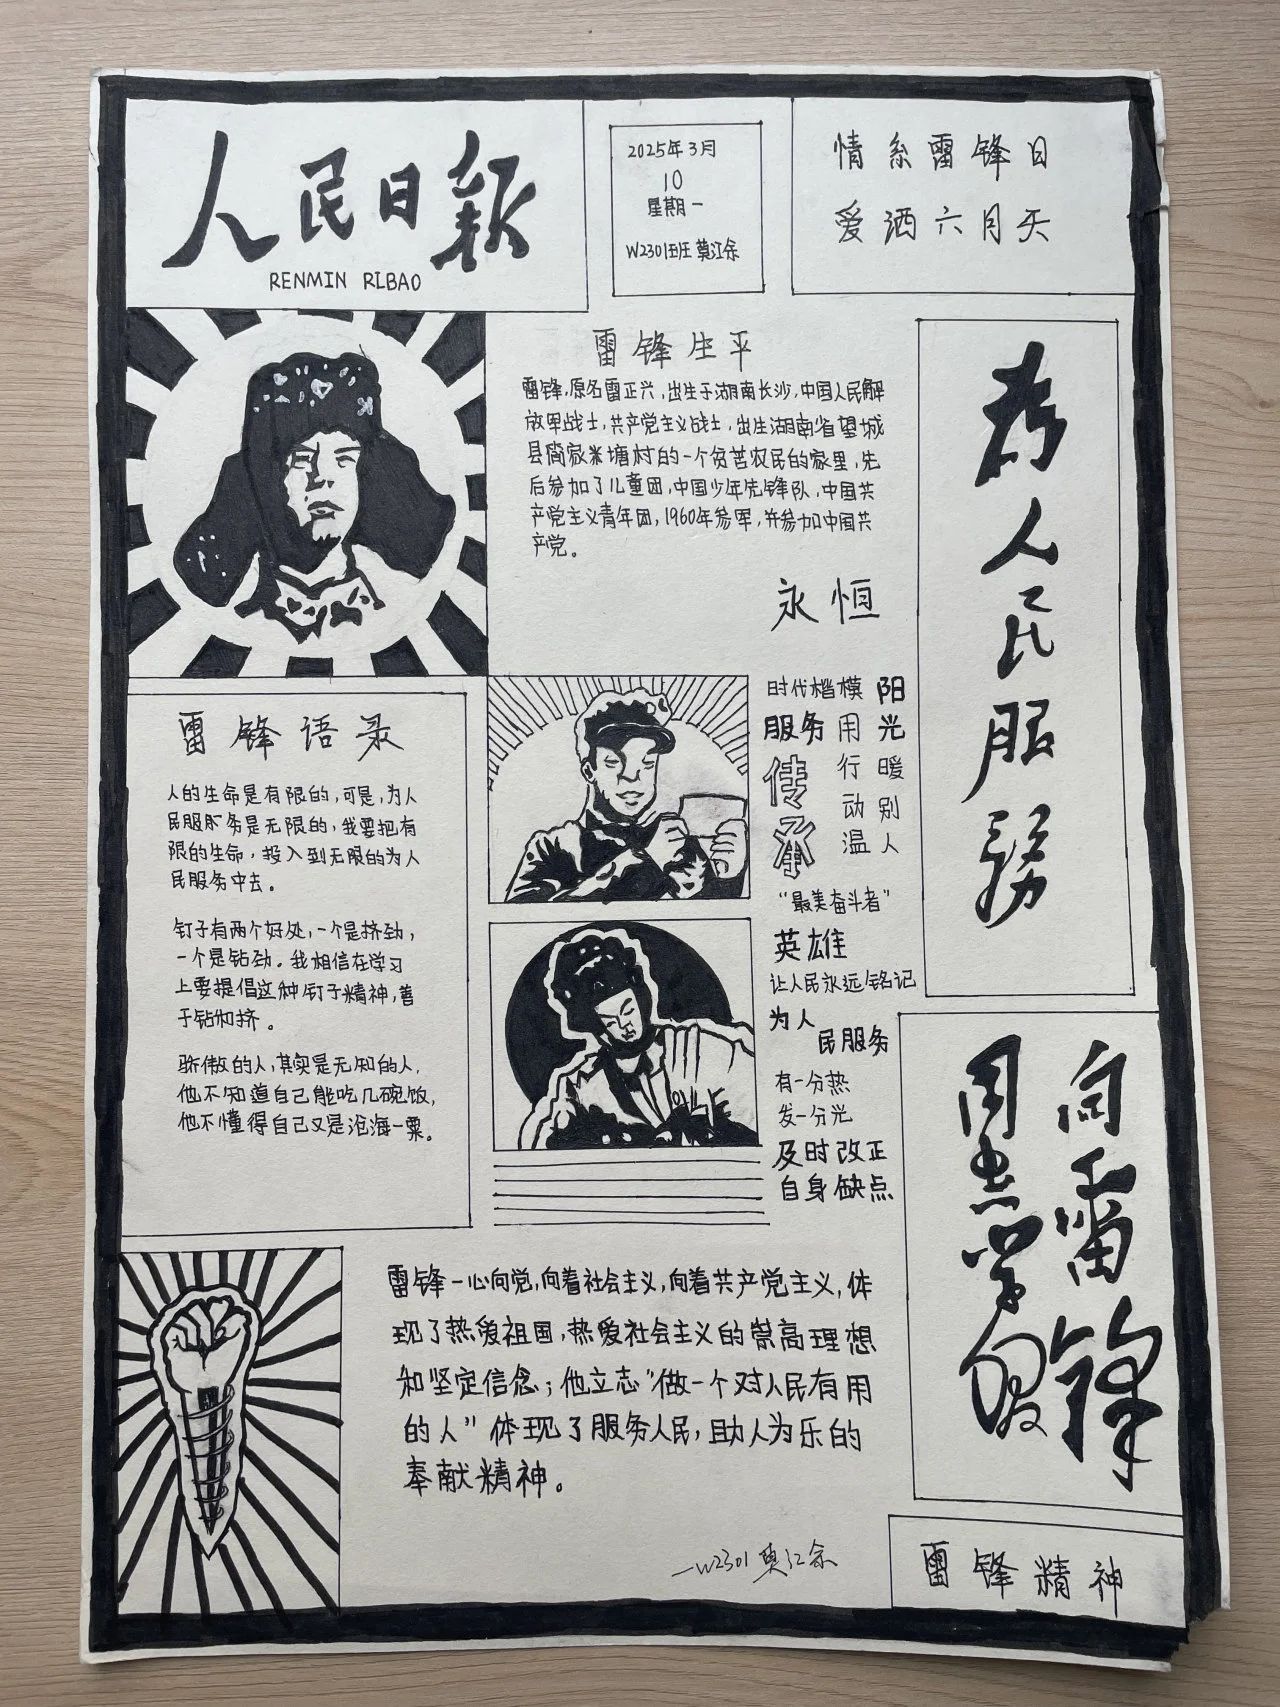 人民日报
RENMIN RIBAO
2025年3月
10
星期一
W2301班 莫江余
情系雷锋日
爱洒六月天
雷锋生平
雷锋,原名雷正兴,出生于湖南长沙,中国人民解
放军战士,共产党主义战士,出生湖南省望城
县简家米塘村的一个贫苦农民的家里,先
后参加了儿童团,中国少年先锋队,中国共
产党主义青年团,1960年参军,并参加中国共
产党。
永恒
为人民服务
雷锋语录
人的生命是有限的,可是,为人
民服务是无限的,我要把有
限的生命,投入到无限的为人
民服务中去。
钉子有两个好处,一个是挤劲,
一个是钻劲。我相信在学习
上要提倡这种钉子精神,善
于钻和挤。
骄傲的人,其实是无知的人,
他不知道自己能吃几碗饭,
他不懂得自己又是沧海一粟。
时代楷模
服务
传承
用行动温
阳光暖别人
“最美奋斗者”
英雄
让人民永远铭记
为人
民服务
有一分热
发一分光
及时改正
自身缺点
向雷锋
同志学习
雷锋一心向党,向着社会主义,向着共产党主义,体
现了热爱祖国,热爱社会主义的崇高理想
和坚定信念;他立志“做一个对人民有用
的人”体现了服务人民,助人为乐的
奉献精神。
—W2301 莫江余
雷锋精神